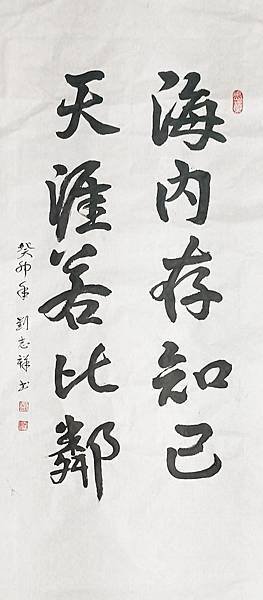 海内存知己
天涯若比鄰
癸卯年 劉志祥书